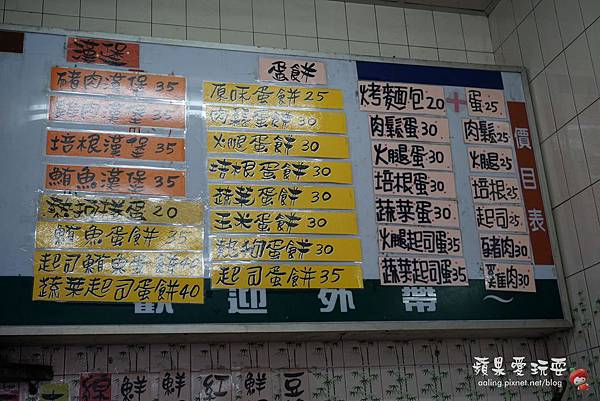 漢堡
豬肉漢堡 35
雞肉漢堡 35
培根漢堡 35
鮪魚漢堡 35
熱狗+蛋 20
鮪魚蛋餅 35
起司鮪魚蛋餅 40
蔬菜起司蛋餅 40
蛋餅
原味蛋餅 25
肉鬆蛋餅 30
火腿蛋餅 30
培根蛋餅 30
蔬菜蛋餅 30
玉米蛋餅 30
熱狗蛋餅 30
起司蛋餅 35
烤麵包 20
肉鬆蛋 30
火腿蛋 30
培根蛋 30
蔬菜蛋 30
火腿起司蛋 35
蔬菜起司蛋 35
+
蛋 25
肉鬆 25
火腿 25
培根 25
起司 25
豬肉 30
雞肉 30
價目表
歡迎外帶~
鮮 鮮 紅 豆
蘋果愛玩耍
aaling.pixnet.net/blog